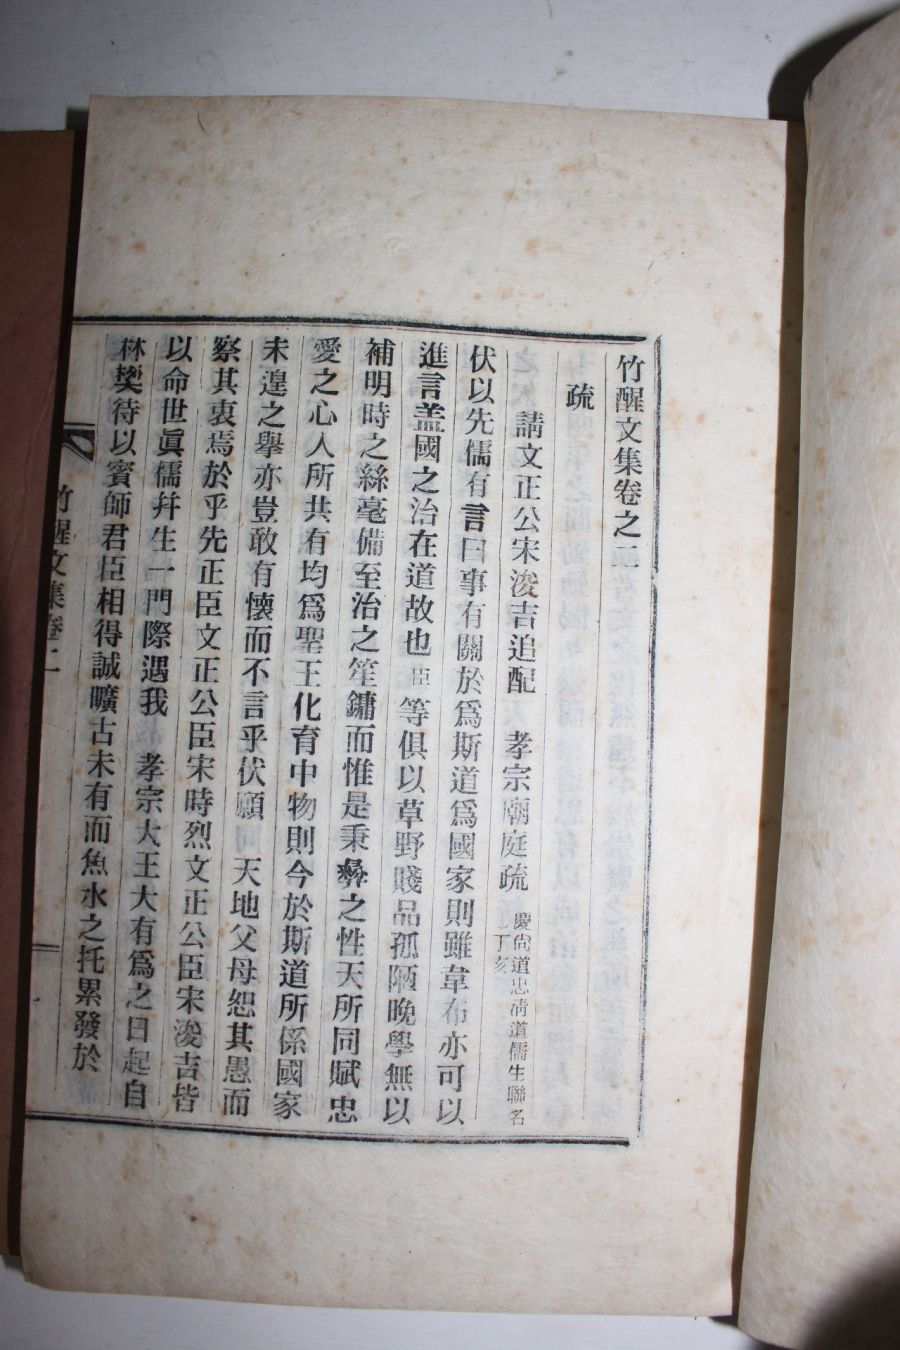 竹醒文集卷之二
疏
請文正公宋浚吉追配 孝宗廟庭疏 慶尙道忠淸道儒生聯名 丁亥
伏以先儒有言曰事有關於爲斯道爲國家則雖韋布亦可以
進言盖國之治在道故也臣等俱以草野賤品孤陋晚學無以
補明時之絲毫備至治之笙鏞而惟是秉彜之性天所同賦忠
愛之心人所共有均爲聖王化育中物則今於斯道所係國家
未遑之擧亦豈敢有懷而不言乎伏願 天地父母恕其愚而
察其衷焉於乎先正臣文正公臣宋時烈文正公臣宋浚吉皆
以命世眞儒幷生一門際遇我 孝宗大王大有爲之日起自
林樊待以賓師君臣相得誠曠古未有而魚水之托累發於
竹醒文集卷二
一